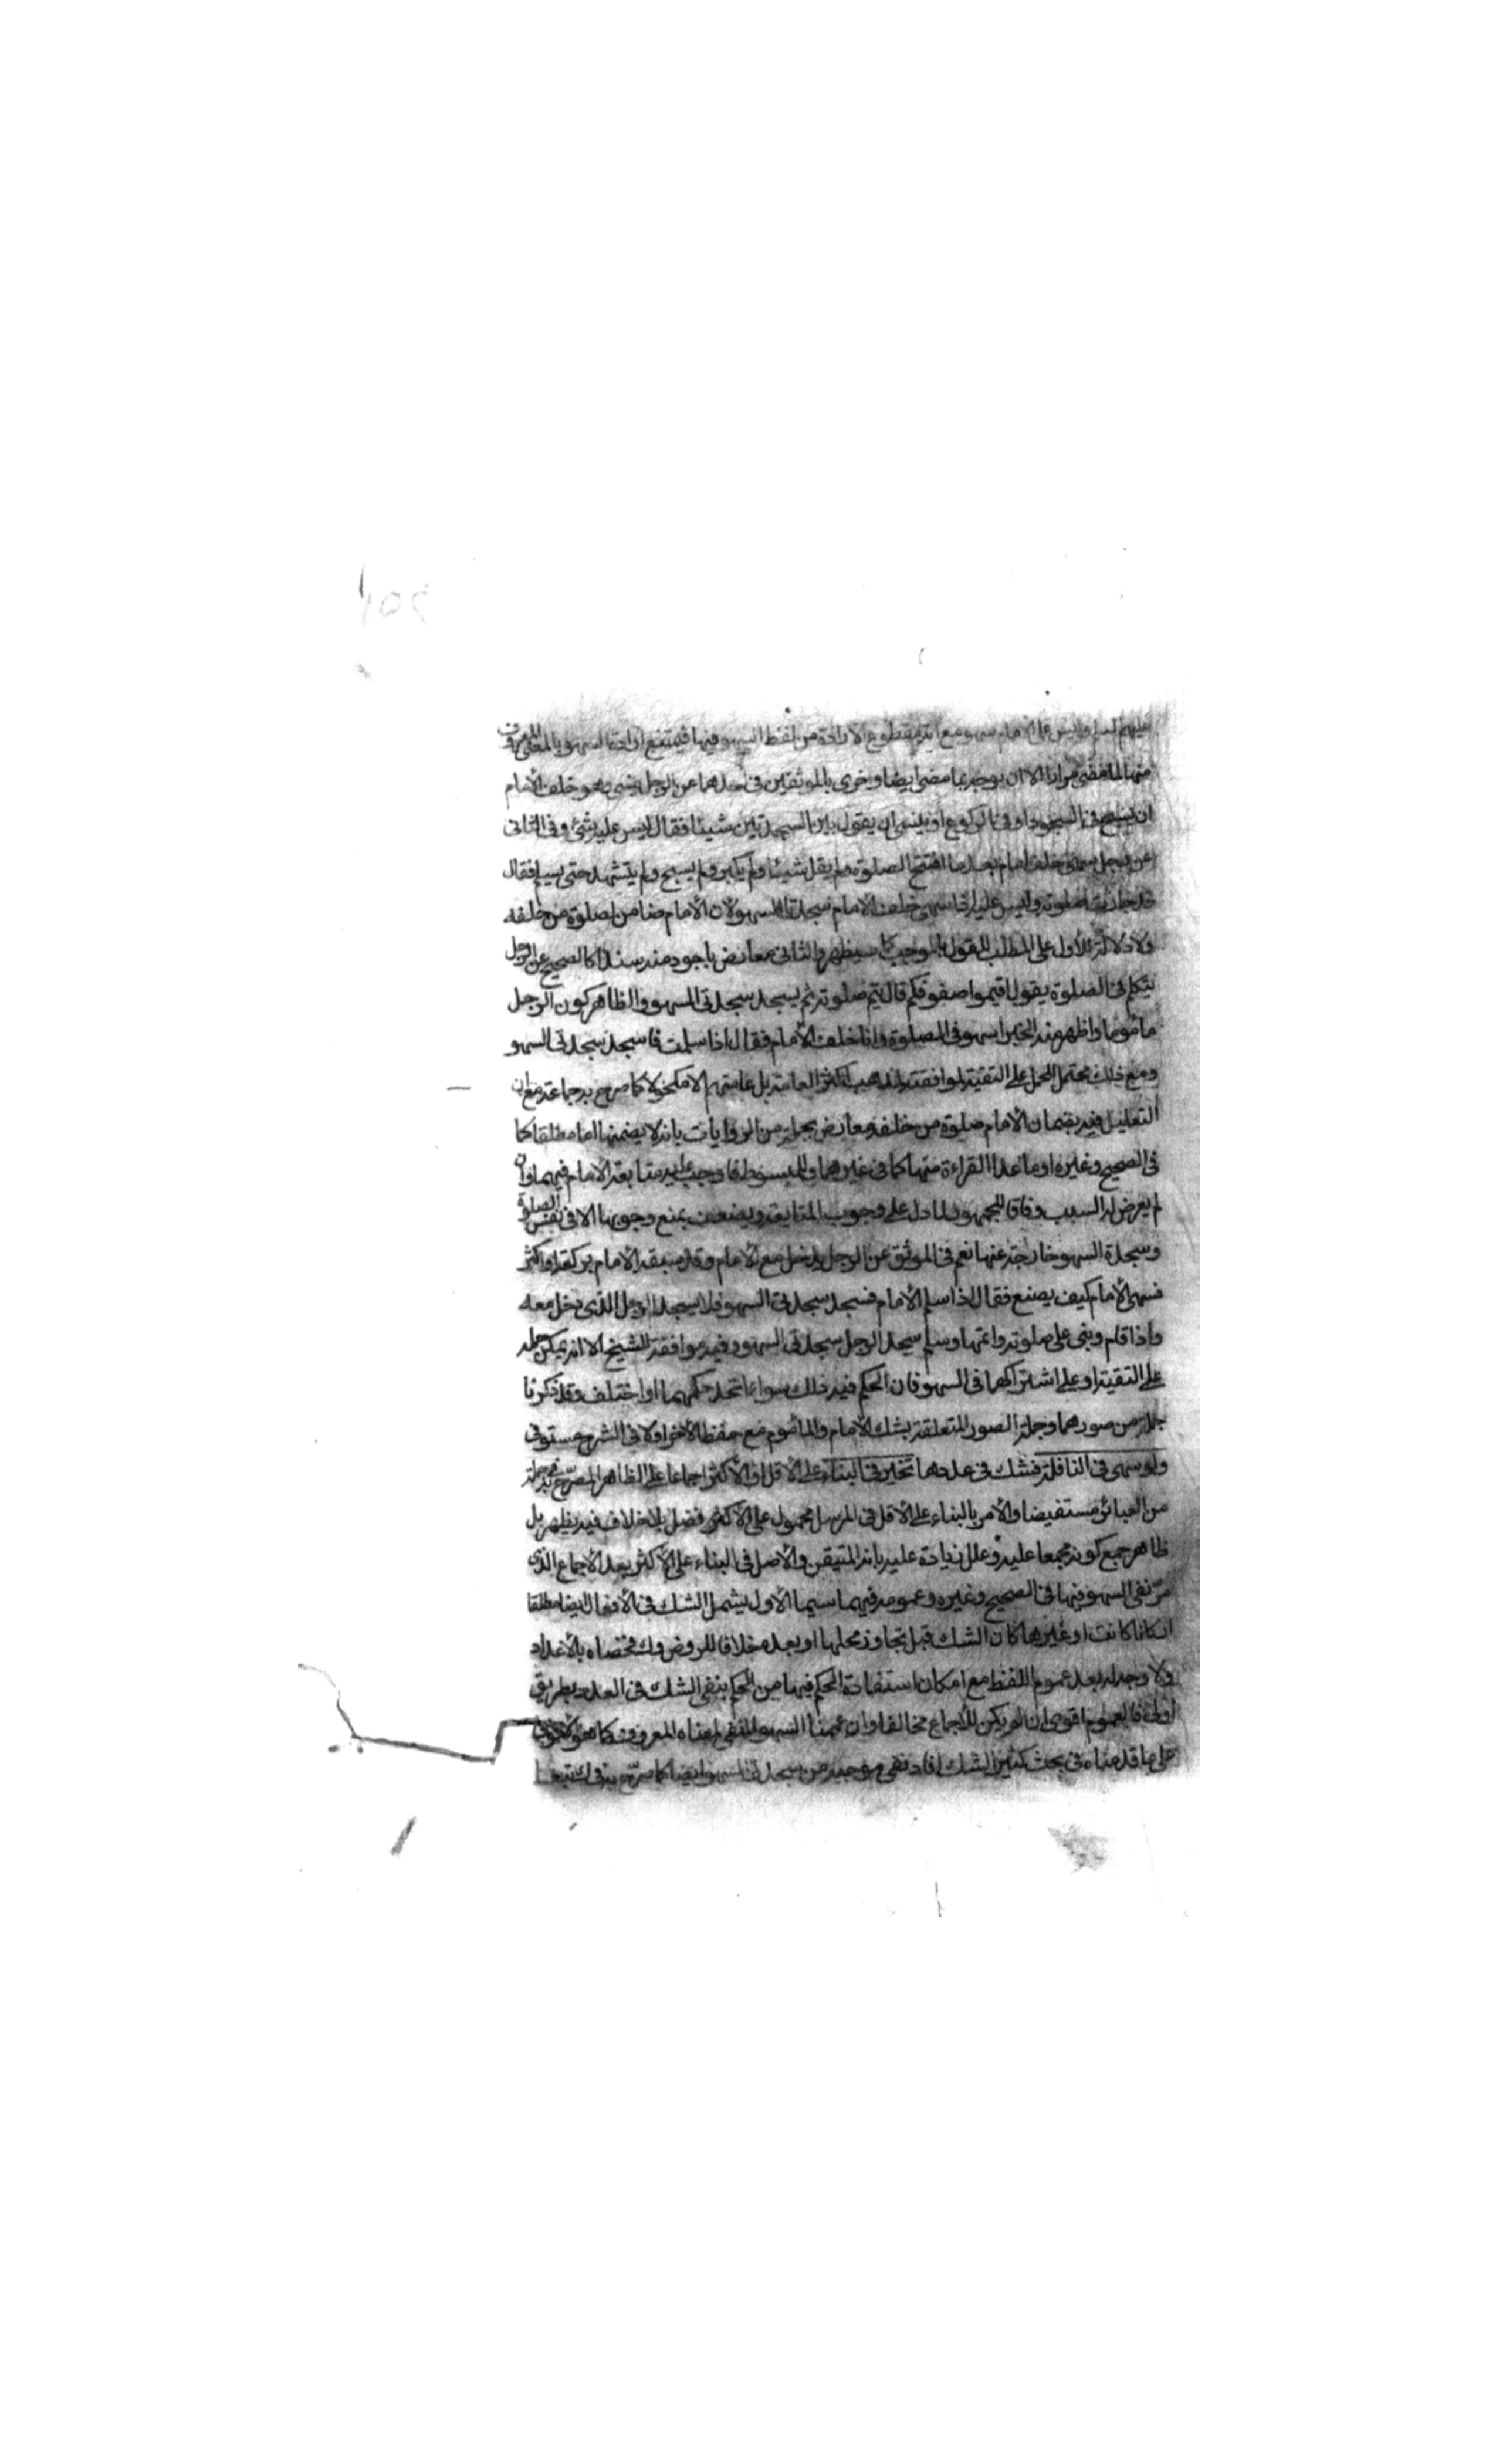 عليهم السلم وليس على الامام سهو مع انه مقطوع الارادة من لفظ السهو فيها فيمتنع ارادة السهو بالمعنى المعروف
منها لما مضى مرارا الا ان يوجه بما مضى ايضا واخرى بالموثقين في احدهما عن الرجل ينسى وهو خلف الأمام
ان يسبح في السجود او في الركوع او ينسى ان يقول بين السجدتين شيئا فقال ليس عليه شئ وفي الثاني
عن رجل سهى خلف امام بعد ما افتتح الصلوة ولم يقل شيئا ولم يكبر ولم يسبح ولم يتشهد حتى يسلم فقال
قد جازت صلوته وليس عليه اذا سهى خلف الأمام سجدتا السهو لان الأمام ضامن لصلوة من خلفه
ولا دلالة للأول على المطلب للقول بالموجب كما سيظهر والثاني معارض باجود منه سندا كالصحيح عن الرجل
يتكلم في الصلوة يقول اقيموا صفوفكم قال يتم صلوته ثم يسجد سجدتي السهو والظاهر كون الرجل
مأموما واظهر منه الخبر اسهو في الصلوة وانا خلف الأمام فقال اذا سلمت فاسجد سجدتي السهو
ومع ذلك محتمل الحمل على التقية لموافقته لمذهب اكثر العامة بل عامتهم الا مكحولا كما صرح به جماعة مع ان
التعليل فيه بضمان الأمام صلوة من خلفه معارض بجملة من الروايات بانه لا يضمنها اما مطلقا كما
في الصحيح وغيره او ما عدا القراءة منها كما في غيرهما وللمبسوط فاوجب عليه متابعة الامام فيهما وان
لم يعرض له السبب وفاقا للجمهور لما دل على وجوب المتابعة ويضعف بمنع وجوبها الا في نفس الصلوة
وسجدة السهو خارجة عنها نعم في الموثق عن الرجل يدخل مع الامام وقد سبقه الامام بركعة او اكثر
فسهى الأمام كيف يصنع فقال اذا سلم الأمام فسجد سجدتي السهو فلا يسجد الرجل الذي دخل معه
واذا قام وبنى على صلوته واتمها وسلم سجد الرجل سجدتي السهو وفيه موافقة الشيخ الا انه يمكن حمله
على التقية او على اشتراكهما في السهو فان الحكم فيه ذلك سواء اتحد حكمهما او اختلف وقد ذكرنا
جملة من صورهما وجملة الصور المتعلقة بشك الأمام والمأموم مع حفظ الآخر اولا في الشرح مستوفى
ولو سهى في النافلة فشك في عددها تخير في البناء على الأقل او الأكثر اجماعا على الظاهر المصرح به في جملة
من العبائر مستفيضا والأمر بالبناء على الأقل في المرسل محمول على الأكثر فضل بلا خلاف فيه يظهر بل
ظاهر جمع كونه مجمعا عليه وعلل زيادة عليه بانه المتيقن والأصل في البناء على الأكثر بعد الأجماع الذي
مرّ نفى السهو فيها في الصحيح وغيره وعمومه فيهما سيما الأول يشمل الشك في الأفعال ايضا مطلقا
اركانا كانت او غيرها كان الشك قبل تجاوز محلها او بعده خلافا للروض وك فخصاه بالأعداد
ولا وجه له بعد عموم اللفظ مع امكان استفادة الحكم فيها من الحكم بنفى الشك في العدد بطريق
اولى فالعموم اقوى ان لم يكن للأجماع مخالفا وان عممنا السهو المنفي لمعناه المعروف كما هو الأقوى
على ما قدمناه في بحث كثير الشك افاد نفى موجبه من سجدتي السهو ايضا كما صرّح به في